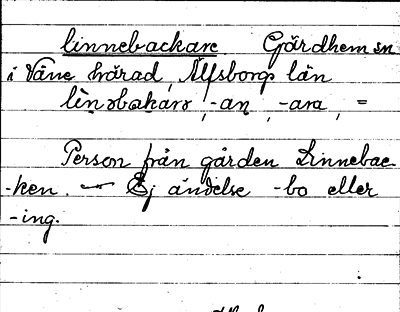 linnebackare Gärdhem sn
i Väne härad, Älfsborgs län
-an, -ara, =
Person från gården Linnebac-
-ken. — Ej ändelse -bo eller
-ing.